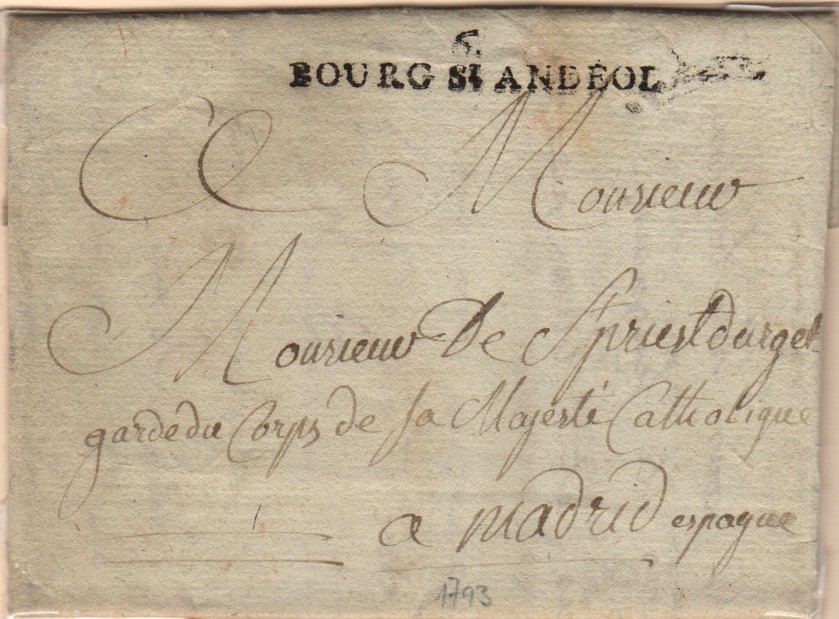 6.
BOURG ST ANDÉOL
A Monsieur
Monsieur De St priest durget
garde du Corps de sa Majesté Catholique
a madrid espagne
1793